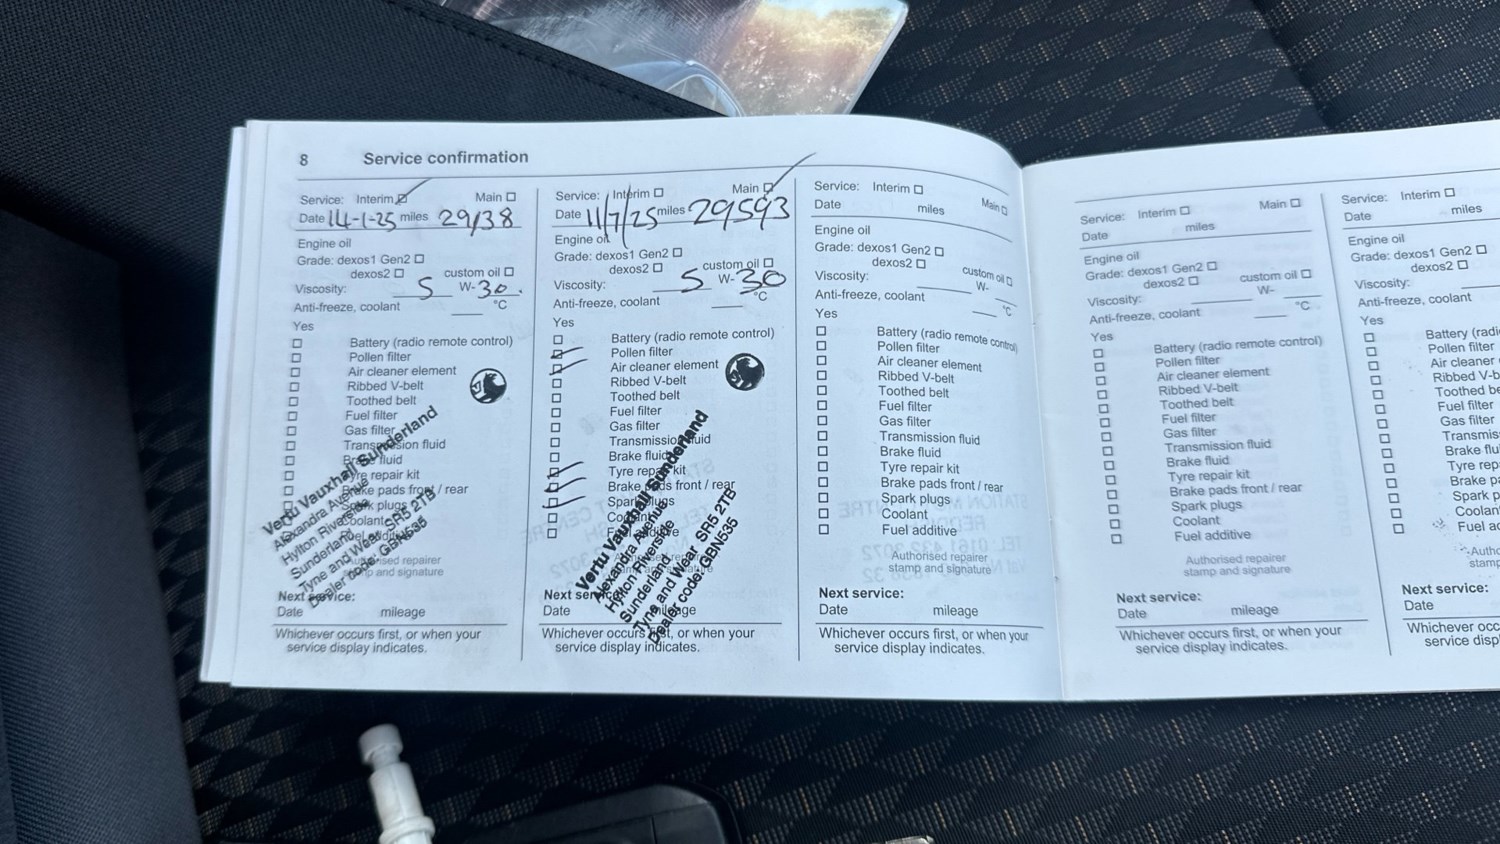 8 Service confirmation
Service: Interim Main
Date 14-1-25 miles 29138
Engine oil
Grade: dexos1 Gen2
dexos2 custom oil
Viscosity: 5 W-30.
Anti-freeze, coolant °C
Yes
Battery (radio remote control)
Pollen filter
Air cleaner element
Ribbed V-belt
Toothed belt
Fuel filter
Gas filter
Transmission fluid
Brake fluid
Tyre repair kit
Brake pads front / rear
Spark plugs
Coolant
Fuel additive
Authorised repairer
stamp and signature
Vertu Vauxhall Sunderland
Alexandra Avenue
Hylton Riverside
Sunderland
Tyne and Wear SR5 2TB
Dealer code: GBN535
Next service:
Date mileage
Whichever occurs first, or when your
service display indicates.
Service: Interim Main
Date 11/7/25 miles 29593
Engine oil
Grade: dexos1 Gen2
dexos2 custom oil
Viscosity: 5 W-30
Anti-freeze, coolant °C
Yes
Battery (radio remote control)
Pollen filter
Air cleaner element
Ribbed V-belt
Toothed belt
Fuel filter
Gas filter
Transmission fluid
Brake fluid
Tyre repair kit
Brake pads front / rear
Spark plugs
Coolant
Fuel additive
Vertu Vauxhall Sunderland
Alexandra Avenue
Hylton Riverside
Sunderland
Tyne and Wear SR5 2TB
Dealer code: GBN535
Next service:
Date mileage
Whichever occurs first, or when your
service display indicates.
Service: Interim Main
Date miles
Engine oil
Grade: dexos1 Gen2
dexos2 custom oil
Viscosity: W-
Anti-freeze, coolant °C
Yes
Battery (radio remote control)
Pollen filter
Air cleaner element
Ribbed V-belt
Toothed belt
Fuel filter
Gas filter
Transmission fluid
Brake fluid
Tyre repair kit
Brake pads front / rear
Spark plugs
Coolant
Fuel additive
Authorised repairer
stamp and signature
Next service:
Date mileage
Whichever occurs first, or when your
service display indicates.
Service: Interim Main
Date miles
Engine oil
Grade: dexos1 Gen2
dexos2 custom oil
Viscosity: W-
Anti-freeze, coolant °C
Yes
Battery (radio remote control)
Pollen filter
Air cleaner element
Ribbed V-belt
Toothed belt
Fuel filter
Gas filter
Transmission fluid
Brake fluid
Tyre repair kit
Brake pads front / rear
Spark plugs
Coolant
Fuel additive
Authorised repairer
stamp and signature
Next service:
Date mileage
Whichever occurs first, or when your
service display indicates.
Service: Interim
Date miles
Engine oil
Grade: dexos1 Gen2
dexos2
Viscosity:
Anti-freeze, coolant
Yes
Battery (radio
Pollen filter
Air cleaner
Ribbed V-b
Toothed be
Fuel filter
Gas filter
Transmis
Brake flu
Tyre rep
Brake p
Spark p
Coolan
Fuel ad
Autho
stamp
Next service:
Date
Whichever occ
service disp